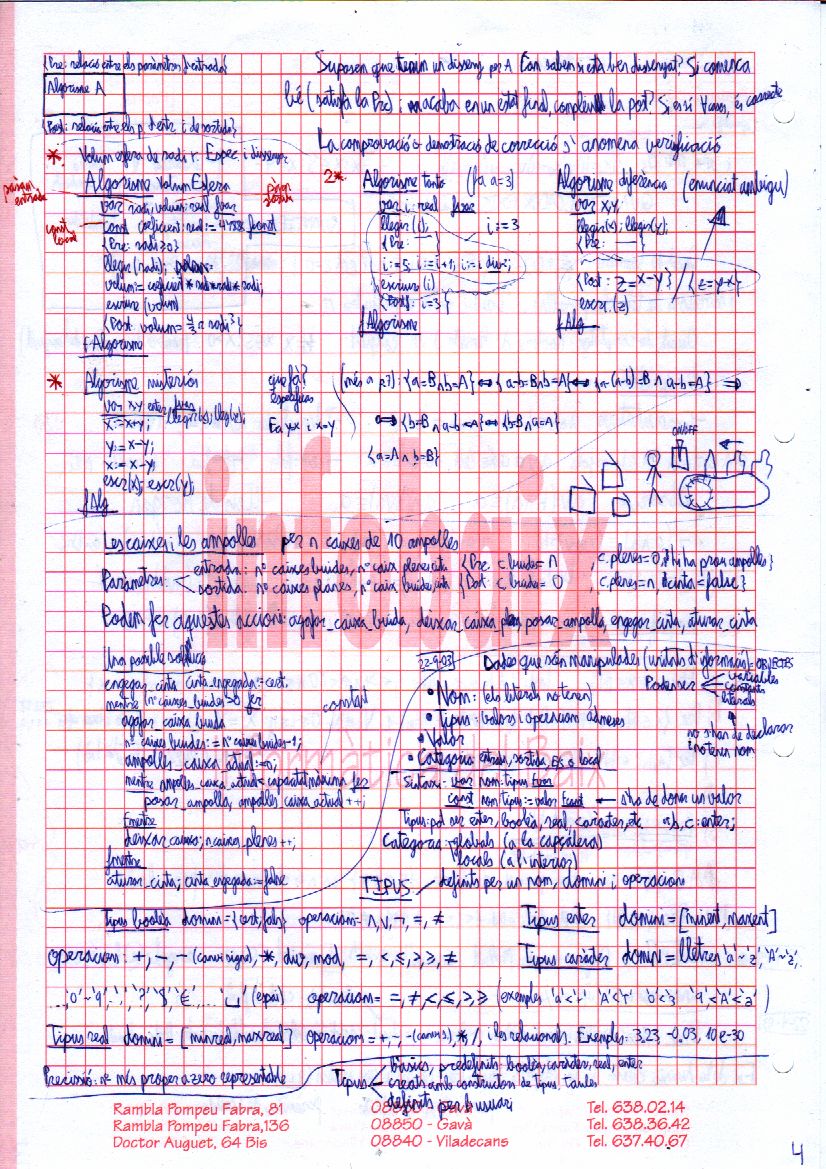 {Pre: relació entre els paràmetres d'entrada}
Algorisme A
{Post: relació entre els p. d'entr. i de sortida}
Suposem que tenim un disseny per A Com saben si està ben dissenyat? Si comença
bé (satisfà la Pre) i acaba en un estat final, complint la post? Si és sí ∀casos, és correcte
La comprovació o demostració de correcció s'anomena verificació
*. Volum esfera de radi r. Espec. i disseny
Algorisme Volum Esfera
var radi, volum: real fvar
const coeficient: real := fconst
{Pre: radi ≥ 0}
llegir(radi);
volum := coeficient * radi*radi*radi;
escriure (volum)
{Post volum = 4/3 π radi³}
f. Algorisme
2*. Algorisme tonto (fa a=3)
var i: real fvar
llegir (i);
{Pre: }
i:=5; i:=i+1; i:=i div 2;
escriure(i)
{Post: i=3}
fAlgorisme
i:=3
Algorisme diferència (enunciat ambigu)
var x,y:
llegir(x); llegir(y);
{Pre: }
{Post: z=x-y} / {z=y-x}
escr.(z)
fAlg
* Algorisme misteriós
var x,y: enter fvar
llegir(x); llegir(y);
x:=x+y;
y:=x-y;
x:=x-y;
escr(x); escr(y);
fAlg
què fà?
Fa y=x i x=y
(més a p.7): {a=B∧b=A} ⟺ {a-b=B∧b=A} ⟺ {a-(a-b)=B ∧ a-b=A} ⟹
⟺ {b=B ∧ a-b=A} ⟺ {b=B∧a=A}
{a=A ∧ b=B}
ON/OFF
Les caixes i les ampolles per n caixes de 10 ampolles
Paràmetres:
entrada: nº caixes buides, nº caixa plenes, cinta {Pre: c. buides = n, c. plenes = 0, hi ha prou ampolles}
sortida: nº caixes planes, nº caixa buides, cinta {Post: c. buides = 0, c. plenes = n, cinta=false}
Podem fer aquestes accions: agafar_caixa_buida, deixar_caixa_plena, posar_ampolla, engegar_cinta, aturar_cinta
Una possible solució
engegar_cinta cinta_engegada:=cert;
mentre (nº caixes_buides)>0 fer
agafar_caixa buida
nº caixes buides:= nº caixes buides-1;
ampolles_caixa_actual:=0;
mentre ampolles_caixa_actual<capacitat màxima fer
posar_ampolla, ampolles_caixa_actual++;
fmentre
deixar caixa; ncaixes_plenes++;
fmentre
aturar_cinta; cinta_engegada:=false
constant
22-9-03
Dades que són manipulades (unitats d'informació) = OBJECTES
Poden ser
variables
constants
literals
no s'han de declarar
i no tenen nom
• Nom: (els literals no tenen)
• Tipus: valors i operacions admeses
• Valor
• Categoria: entrada, sortida, E/S o local
Sintaxi: var nom: tipus fvar
const nom tipus:= valor fconst ← s'ha de donar un valor
Tipus: pot ser enter, booleà, real, caràcter, etc. a,b,c: enter;
Categoria: globals (a la capçalera)
locals (a l'interior)
TIPUS definits per un nom, domini i operacions
Tipus booleà domini={cert, fals} operacions= ∧,∨,¬,=,≠
Tipus enter domini = [minent, maxent]
operacions: +, -, -(canvi signe), *, div, mod, =, <, ≤, >, ≥, ≠
Tipus caràcter domini = lletres 'a'~'z', 'A'~'Z',
...'0'~'9', ',', '?', '$', '€', ... '␣' (espai) operacions= =,≠,<,≤,>,≥ (exemples 'a'<'t' 'A'<'T' '0'<'3' '9'<'A'<'a')
Tipus real domini = [minreal, maxreal] operacions = +,-, -(canvi s), *, /, i les relacionals. Exemples: 3.23, -0.03, 10 e-30
Precisió: nº més proper a zero representable
Tipus
bàsics, predefinits: booleà, caràcter, real, enter
creats amb constructors de tipus: taules
definits per l'usuari
infobaix
informàtica del Baix
Rambla Pompeu Fabra, 81 08850 - Gavà Tel. 638.02.14
Rambla Pompeu Fabra,136 08850 - Gavà Tel. 638.36.42
Doctor Auguet, 64 Bis 08840 - Viladecans Tel. 637.40.67
4